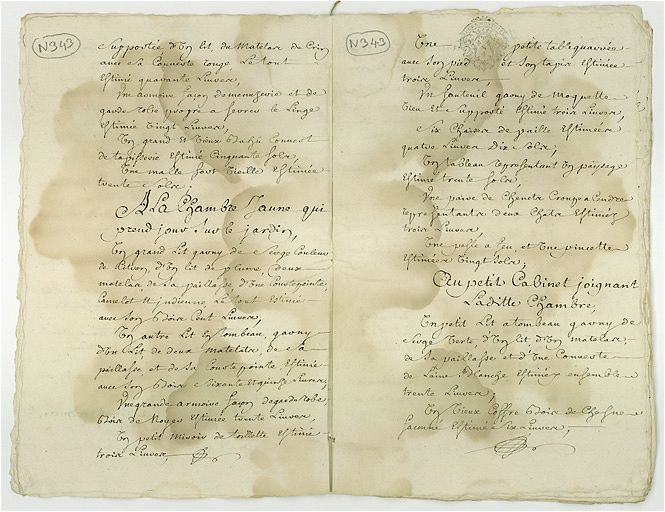 N343
Supportée d'un lit, du matelas de Crin
avec sa Couverte rouge Le tout
Estimé quarante Livres
Une armoire façon de menuiserie et de
garde robe propre a serrer le Linge
Estimée Vingt Livres,
Un grand et Vieux Couvert
de tapisserie Estimée Cinquante Sols,
Une malle fort Vieille Estimée
trente Sols;
A La Chambre Jaune qui
prend jour sur le jardin,
Un grand Lit garny de Serge Couleur
de Citron, d'Un lit de plume, deux
matelas, de sa paillasse d'Une Contrepointe,
Le tout Estimé
avec son Bois Cent Livres,
Un autre Lit en tombeau, garny
d'Un Lit de deux matelats, de sa
paillasse et de sa Contrepointe Estimé
avec son Bois Soixante et quinze Livres,
Une grande armoire façon de garde robe
Bois de Noyer Estimée trente Livres,
Un petit Miroir de toilette Estimé
trois Livres,
N343
Une petite table quarrée
avec son pied Et son tapis Estimée
trois Livres
Un fauteuil garny de Moquette
Vieu Et Supporté Estimé trois Livres,
Six Chaises de paille Estimées
quatre Livres dix Sols,
Un tableau representant Un paysage
Estimé trente Sols,
Une paire de Chenets
representants deux Chats Estimés
trois Livres,
Une pesle a feu et Une pincette
Estimées Vingt Sols;
Au petit Cabinet joignant
Laditte Chambre,
Un petit Lit a tombeau garny de
Serge Verte, d'Un lit, d'Un matelas,
de Sa paillasse et d'Une Couverte
de Laine Blanche Estimés ensemble
trente Livres,
Un Vieux Coffre Bois de Chesne
Estimé Six Livres,